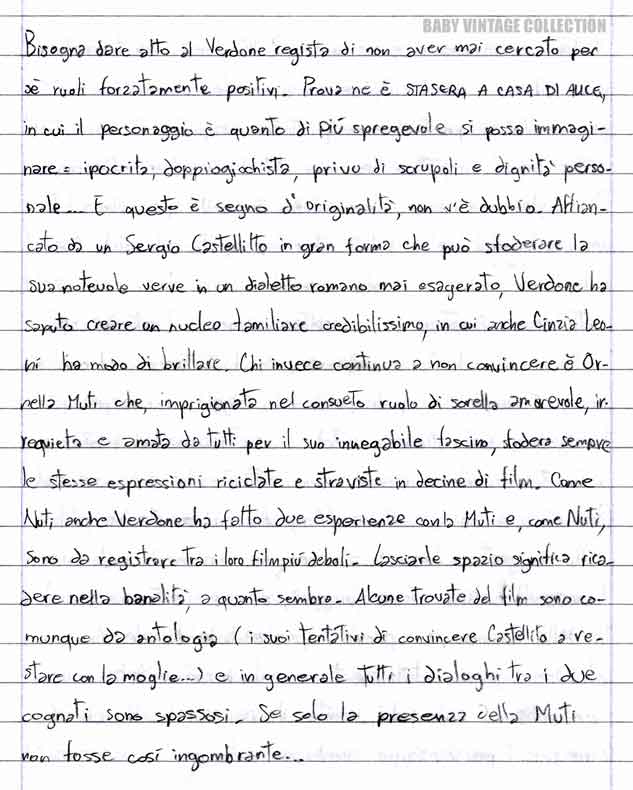 BABY VINTAGE COLLECTION
Bisogna dare atto al Verdone regista di non aver mai cercato per
sè ruoli forzatamente positivi. Prova ne è STASERA A CASA DI ALICE,
in cui il personaggio è quanto di più spregevole si possa immagi-
nare: ipocrita, doppiogiochista, privo di scrupoli e dignità perso-
nale... E questo è segno d'originalità, non v'è dubbio. Affian-
cato da un Sergio Castellitto in gran forma che può sfoderare la
sua notevole verve in un dialetto romano mai esagerato, Verdone ha
saputo creare un nucleo familiare credibilissimo, in cui anche Cinzia Leo-
ni ha modo di brillare. Chi invece continua a non convincere è Or-
nella Muti che, imprigionata nel consueto ruolo di sorella amorevole, ir-
requieta e amata da tutti per il suo innegabile fascino, sfodera sempre
le stesse espressioni riciclate e straviste in decine di film. Come
Nuti anche Verdone ha fatto due esperienze con la Muti e, come Nuti,
sono da registrare tra i loro film più deboli. Lasciarle spazio significa rica-
dere nella banalità, a quanto sembra. Alcune trovate del film sono co-
munque da antologia (i suoi tentativi di convincere Castellitto a re-
stare con la moglie...) e in generale tutti i dialoghi tra i due
cognati sono spassosi. Se solo la presenza della Muti
non fosse così ingombrante...